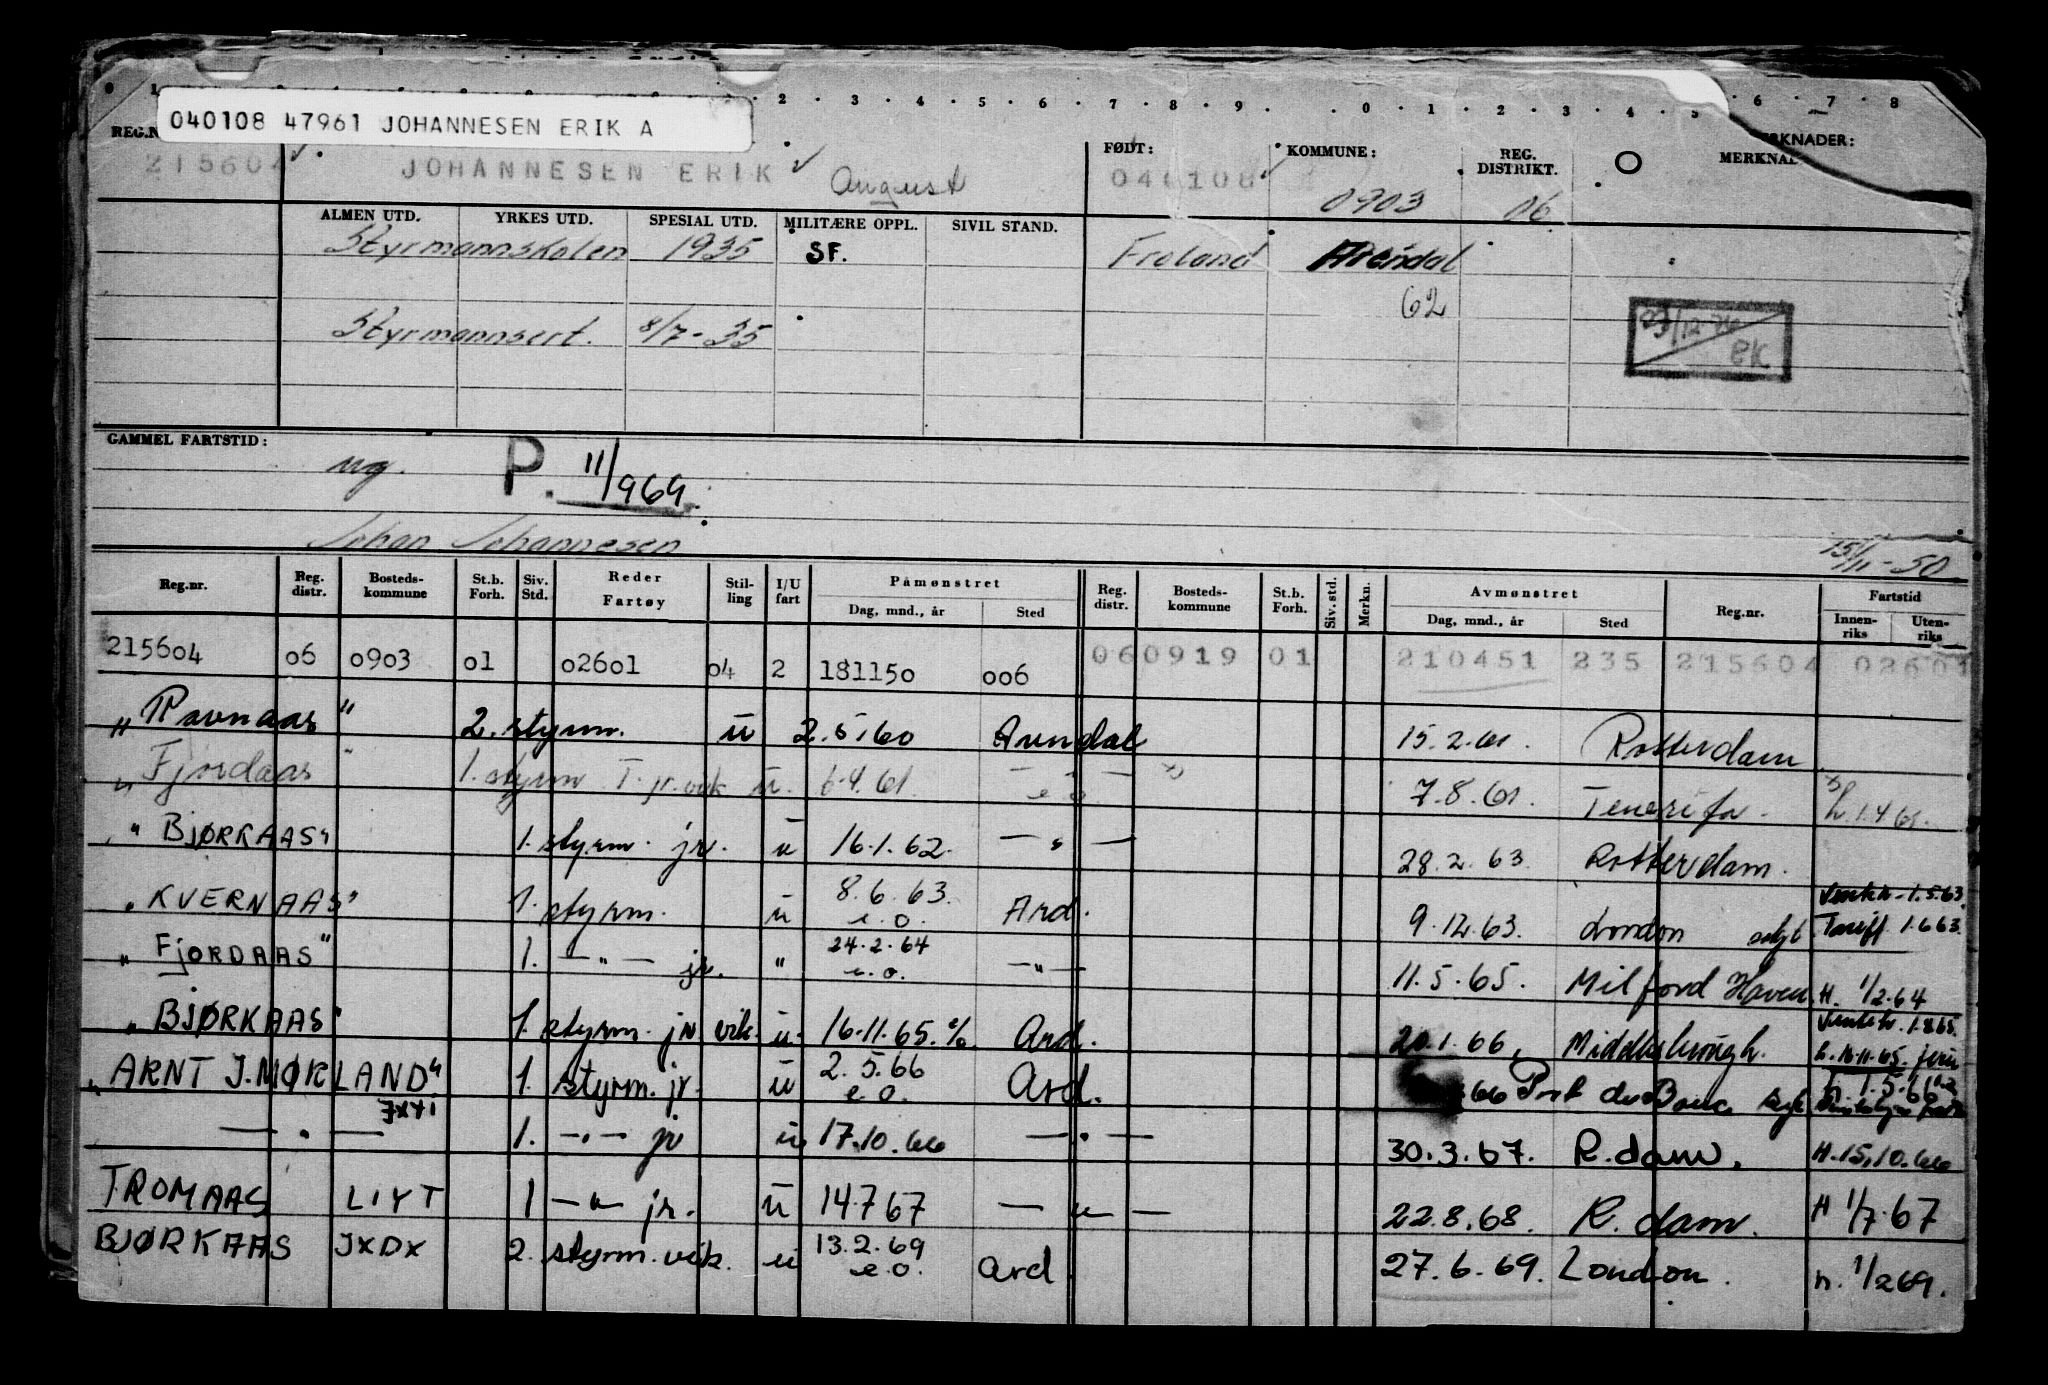 0 1 2 3 4 5 6 7 8 9 0 1 2 3 4 5 6 7 8
040108 47961 JOHANNESEN ERIK A
REG.N FØDT: KOMMUNE: REG. DISTRIKT. MERKNA ERKNADER:
215604 JOHANNESEN ERIK August 040108 0903 06
ALMEN UTD. YRKES UTD. SPESIAL UTD. MILITÆRE OPPL. SIVIL STAND.
Styrmannskolen 1935 SF. Froland Arendal
62
Styrmannsert. 8/7-35
23/12-76 ek
GAMMEL FARTSTID:
ug. P. 11/969
Johan Johannesen 15/11-50
Reg.nr. Reg. distr. Bosteds-kommune St.b. Forh. Siv. Std. Reder Fartøy Stilling I/U fart Påmønstret Reg. distr. Bosteds-kommune St.b. Forh. Siv. std. Merkn. Avmønstret Reg.nr. Fartstid
Dag, mnd., år Sted Dag, mnd., år Sted Innen-riks Uten-riks
215604 06 0903 01 02601 04 2 181150 006 060919 01 210451 235 215604 02601
"Ravnaas" 2. styrm. u 2.5.60 Arendal 15.2.61. Rotterdam
"Fjordaas" 1. styrm T. jr. vik u. 6.4.61. — " — x) e.o. 7.8.61. Tenerifa. x) h. 1.4 61.
"BJØRKAAS" 1. styrm. jr. u 16.1.62. — " — 28.2.63. Rotterdam.
"KVERNAAS" 1. styrm. u 8.6.63. e.o. Ard. 9.12.63. London solgt Ventek. 1.5.63. Tariff 1.6 63.
"FjORDAAS" 1. — " — jr. " 24.2.64 e.o. — " — 11.5.65. Milford Haven H. 1/2.64
"BJØRKAAS" 1. styrm. jr vik. u. 16.11.65. Ard. 20.1.66. Middlesbrough. 1.8.65. h. 16.11.65.
"ARNT J. MØRLAND" JXYI 1. styrm. jr. u 2.5.66 e.o. Ard. 66 Port de Bouc h. 1.5.66
— " — 1. — " — jr u 17.10.66 — " — 30.3.67. R.dam. H. 15.10.66
TROMAAS LIYT 1 — " — jr. u 14.7 67 — " — 22.8.68. R.dam. H 1/7.67
BJØRKAAS JXDX 2. styrm. vik. u 13.2.69 e.o. Ard 27.6.69. London. h. 1/2 69.